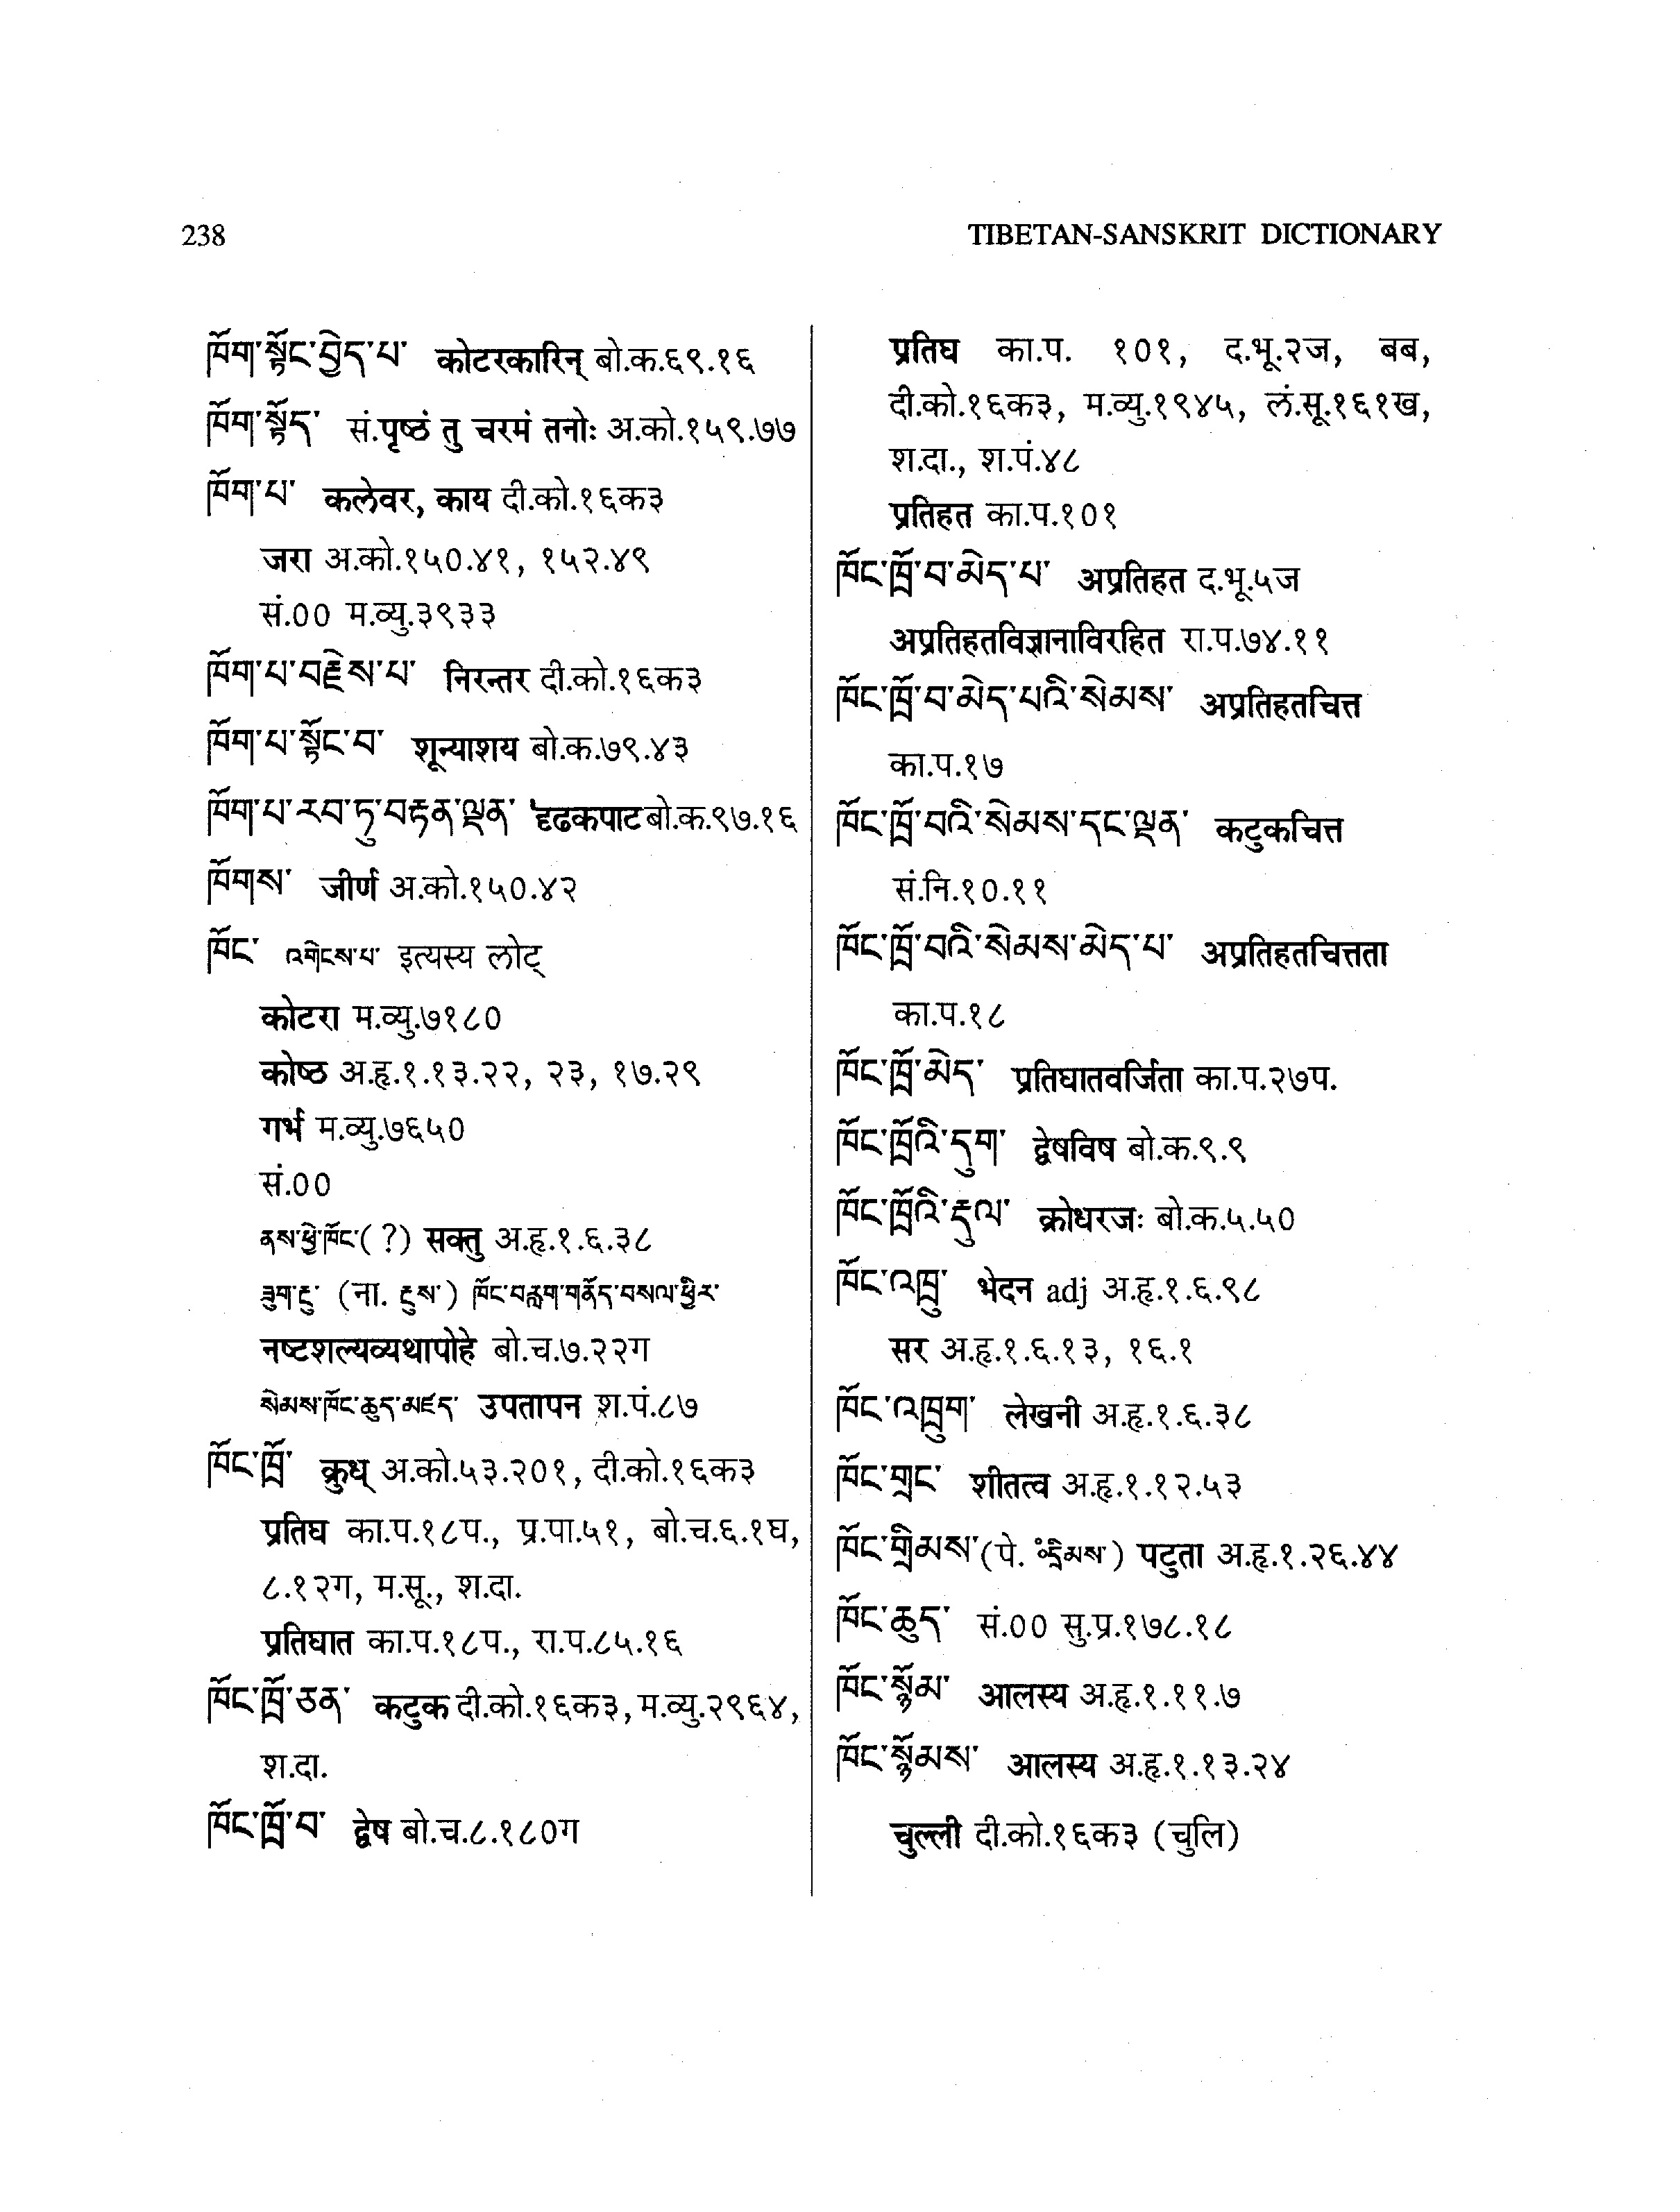 238
TIBETAN-SANSKRIT DICTIONARY
ཁོག་སྟོང་བྱེད་པ་ कोटरकारिन् बो.क.६९.१६
ཁོག་སྟོད་ सं.पृष्ठं तु चरमं तनोः अ.को.१५९.७७
ཁོག་པ་ कलेवर, काय दी.को.१६क३
जरा अ.को.१५0.४१, १५२.४९
सं.00 म.व्यु.३९३३
ཁོག་པ་བརྗེས་པ་ निरन्तर दी.को.१६क३
ཁོག་པ་སྟོང་བ་ शून्याशय बो.क.७९.४३
ཁོག་པ་རབ་ཏུ་བརྟན་ལྡན་ दृढकपाट बो.क.९७.१६
ཁོགས་ जीर्ण अ.को.१५0.४२
ཁོང་ འགེངས་པ་ इत्यस्य लोट्
कोटरा म.व्यु.७१८0
कोष्ठ अ.हृ.१.१३.२२, २३, १७.२९
गर्भ म.व्यु.७६५0
सं.00
ནས་ཕྱེ་ཁོང་(?) सक्तु अ.हृ.१.६.३८
ཟུག་རྔུ་ (ना. རྔུས་) ཁོང་བརླག་གནོད་བསལ་ཕྱིར་
नष्टशल्यव्यथापोहे बो.च.७.२२ग
སེམས་ཁོང་ཆུད་མཛད་ उपतापन श.पं.८७
ཁོང་ཁྲོ་ क्रुध् अ.को.५३.२0१, दी.को.१६क३
प्रतिघ का.प.१८प., प्र.पा.५१, बो.च.६.१घ,
८.१२ग, म.सू., श.दा.
प्रतिघात का.प.१८प., रा.प.८५.१६
ཁོང་ཁྲོ་ཅན་ कटुक दी.को.१६क३, म.व्यु.२९६४,
श.दा.
ཁོང་ཁྲོ་བ་ द्वेष बो.च.८.१८0ग
प्रतिघ का.प. १0१, द.भू.२ज, बब,
दी.को.१६क३, म.व्यु.१९४५, लं.सू.१६१ख,
श.दा., श.पं.४८
प्रतिहत का.प.१0१
ཁོང་ཁྲོ་བ་མེད་པ་ अप्रतिहत द.भू.५ज
अप्रतिहतविज्ञानाविरहित रा.प.७४.११
ཁོང་ཁྲོ་བ་མེད་པའི་སེམས་ अप्रतिहतचित्त
का.प.१७
ཁོང་ཁྲོ་བའི་སེམས་དང་ལྡན་ कटुकचित्त
सं.नि.१0.११
ཁོང་ཁྲོ་བའི་སེམས་མེད་པ་ अप्रतिहतचित्तता
का.प.१८
ཁོང་ཁྲོ་མེད་ प्रतिघातवर्जिता का.प.२७प.
ཁོང་ཁྲོའི་དུག་ द्वेषविष बो.क.९.९
ཁོང་ཁྲོའི་རྡུལ་ क्रोधरजः बो.क.५.५0
ཁོང་འཁྲུ་ भेदन adj अ.हृ.१.६.९८
सर अ.हृ.१.६.१३, १६.१
ཁོང་འཁྲུག་ लेखनी अ.हृ.१.६.३८
ཁོང་གྲང་ शीतत्व अ.हृ.१.१२.५३
ཁོང་གྲིམས་(पे. ༠དྲིམས་) पटुता अ.हृ.१.२६.४४
ཁོང་ཆུད་ सं.00 सु.प्र.१७८.१८
ཁོང་སྙོམ་ आलस्य अ.हृ.१.११.७
ཁོང་སྙོམས་ आलस्य अ.हृ.१.१३.२४
चुल्ली दी.को.१६क३ (चुलि)